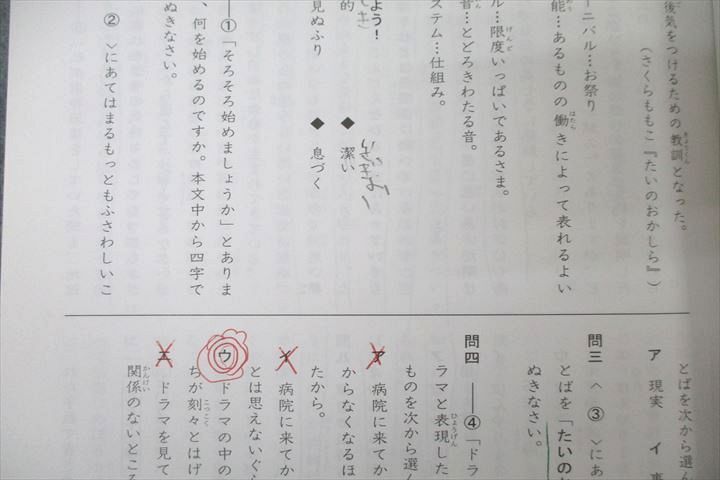 後気をつけるための教訓となった。
（さくらももこ『たいのおかしら』）
ーニバル…お祭り
能…あるものの働きによって表れるよい
ル…限度いっぱいであるさま。
音…とどろきわたる音。
ステム…仕組み。
よう！
的 ◆ 潔い いさぎよい
見ぬふり ◆ 息づく
――①「そろそろ始めましょうか」とありま
、何を始めるのですか。本文中から四字で
ぬきなさい。
② 〉にあてはまるもっともふさわしいこ
とばを次から選ん
ア 現実 イ
問三 〈 ③ 〉にあ
とばを「たいのお
ぬきなさい。
問四 ――④「ドラ
ラマと表現した
ものを次から選ん
ア 病院に来てか
からなくなるほ
たから。
イ 病院に来てか
とは思えないぐら
ウ ドラマの中の
ちが刻々とはげ
エ ドラマを見て
関係のないところ